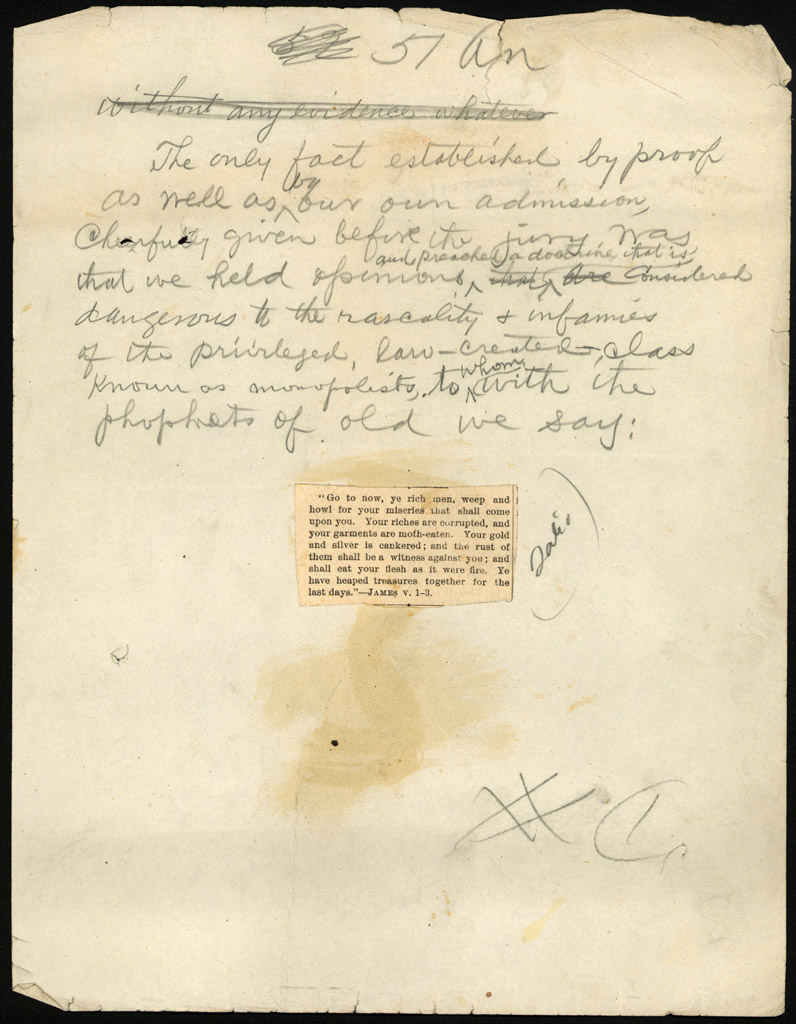 51 An
without any evidence whatever
The only fact established by proof
as well as by our own admission,
Cheerfully given before the jury was
that we held opinions and preached a doctrine that is that are Considered
dangerous to the rascality & infamies
of the privileged, law-created, class
Known as monopolists, to whom with the
phophets of old we say:
"Go to now, ye rich men, weep and
howl for your miseries that shall come
upon you. Your riches are corrupted, and
your garments are moth-eaten. Your gold
and silver is cankered; and the rust of
them shall be a witness against you; and
shall eat your flesh as it were fire. Ye
have heaped treasures together for the
last days."—JAMES V. 1-3.